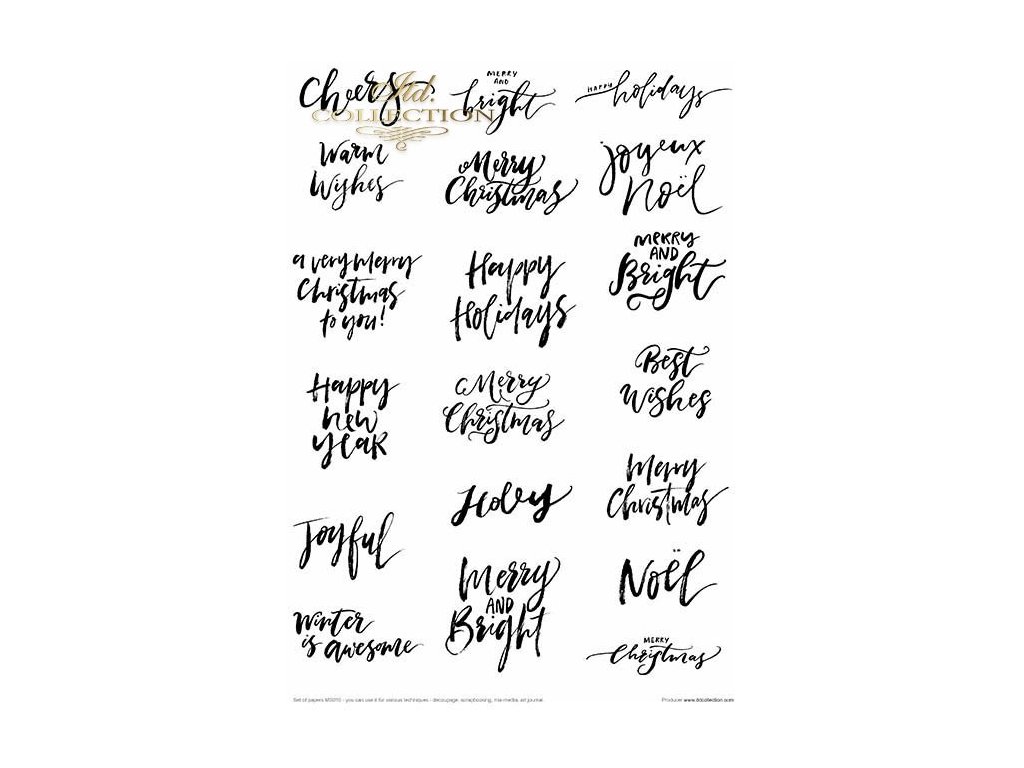 Cheers
Itd.
COLLECTION
MERRY
AND
bright
HAPPY holidays
Warm
Wishes
Merry
Christmas
Joyeux
Noël
a very merry
Christmas
to you!
Happy
Holidays
MERRY
AND
Bright
Happy
new
year
Merry
Christmas
Best
Wishes
Joyful
Holly
Merry
Christmas
Winter
is awesome
Merry
AND
Bright
Noël
MERRY
Christmas
- you can use it for various techniques - decoupage, scrapbooking, mix-media, art journal
Producer: www.itdcollection.com